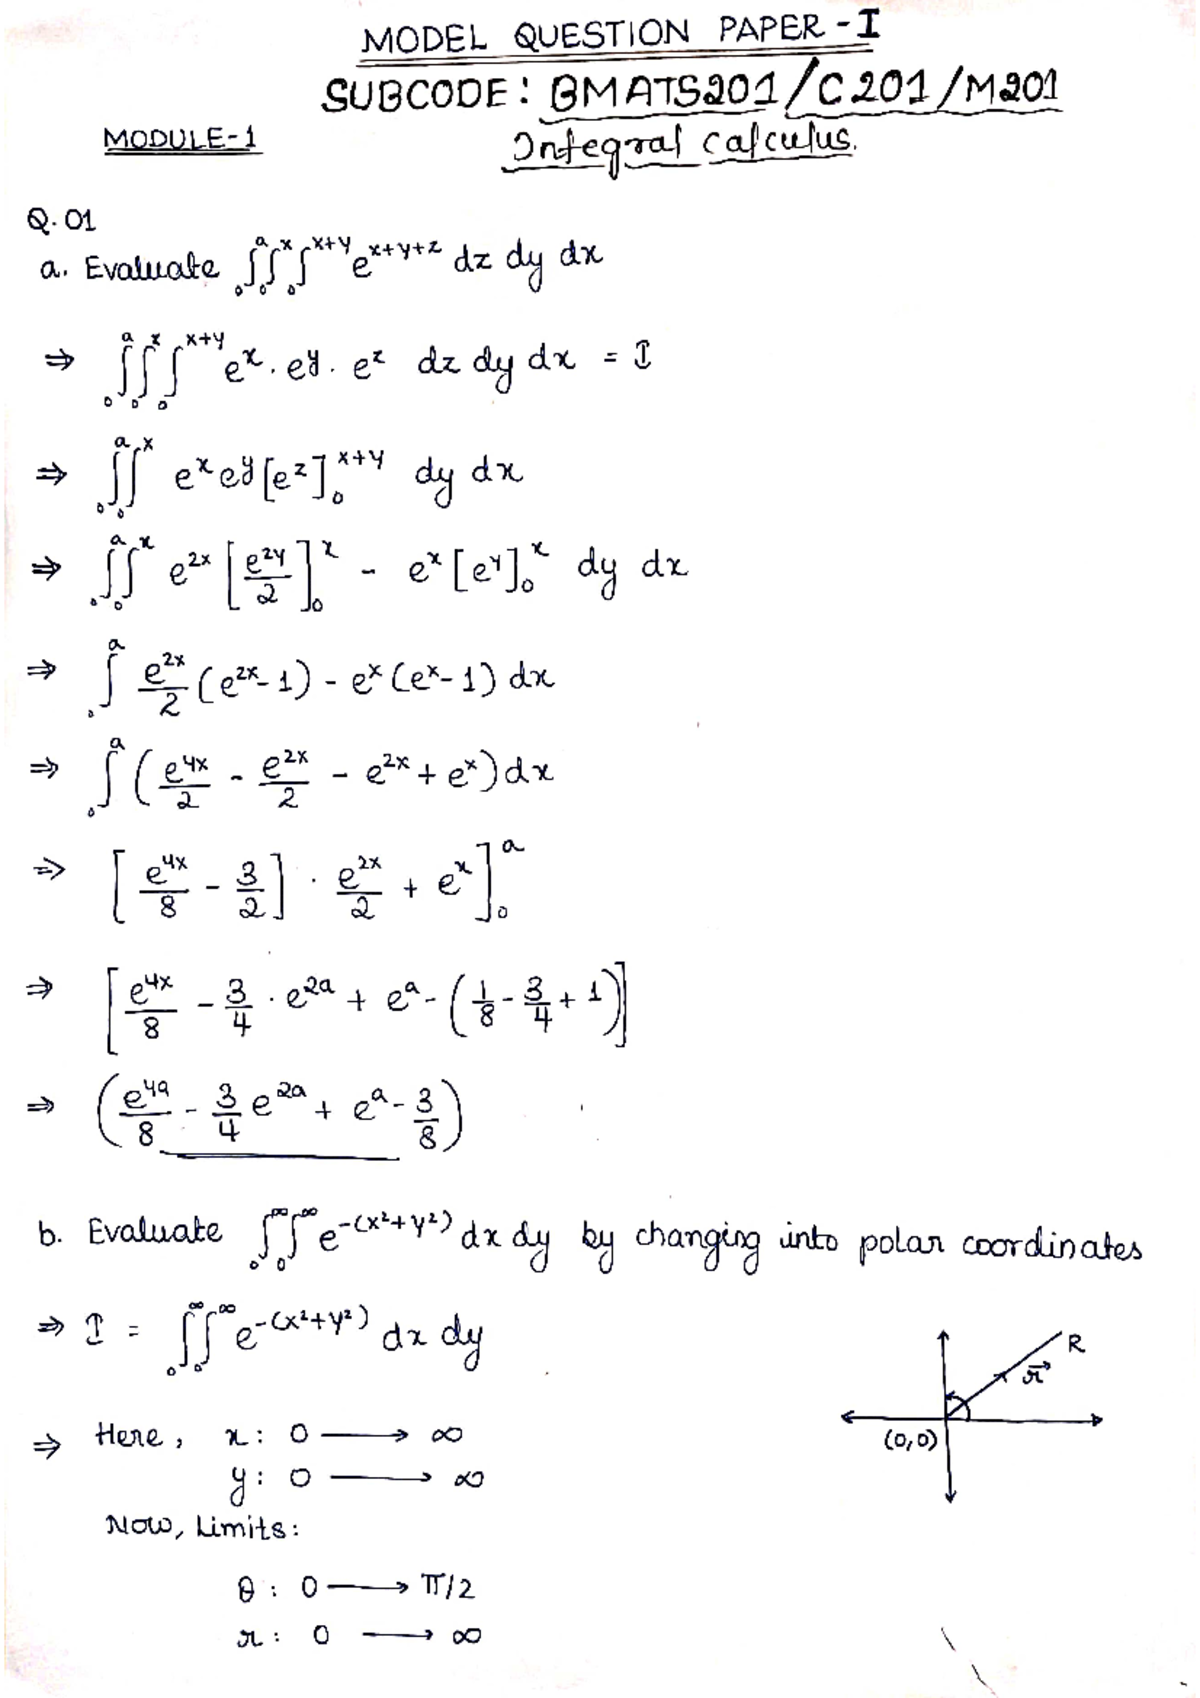 MODEL QUESTION PAPER - I
SUBCODE: BMATS201/C201/M201
MODULE-1
Integral calculus.
Q. 01
a. Evaluate ∫₀^a ∫₀^x ∫₀^(x+y) e^(x+y+z) dz dy dx
⇒ ∫₀^a ∫₀^x ∫₀^(x+y) e^x . e^y . e^z dz dy dx = I
⇒ ∫₀^a ∫₀^x e^x e^y [e^z]₀^(x+y) dy dx
⇒ ∫₀^a ∫₀^x e^(2x) [e^(2y)/2]₀^x - e^x [e^y]₀^x dy dx
⇒ ∫₀^a e^(2x)/2 (e^(2x) - 1) - e^x (e^x - 1) dx
⇒ ∫₀^a (e^(4x)/2 - e^(2x)/2 - e^(2x) + e^x) dx
⇒ [e^(4x)/8 - 3/2] . e^(2x)/2 + e^x]₀^a
⇒ [e^(4x)/8 - 3/4 . e^(2a) + e^a - (1/8 - 3/4 + 1)]
⇒ (e^(4a)/8 - 3/4 e^(2a) + e^a - 3/8)
b. Evaluate ∫₀^∞ ∫₀^∞ e^-(x²+y²) dx dy by changing into polar coordinates
⇒ I = ∫₀^∞ ∫₀^∞ e^-(x²+y²) dx dy
R
r⃗
(0,0)
⇒ Here, x: 0 ⟶ ∞
y: 0 ⟶ ∞
Now, Limits:
θ : 0 ⟶ π/2
r : 0 ⟶ ∞